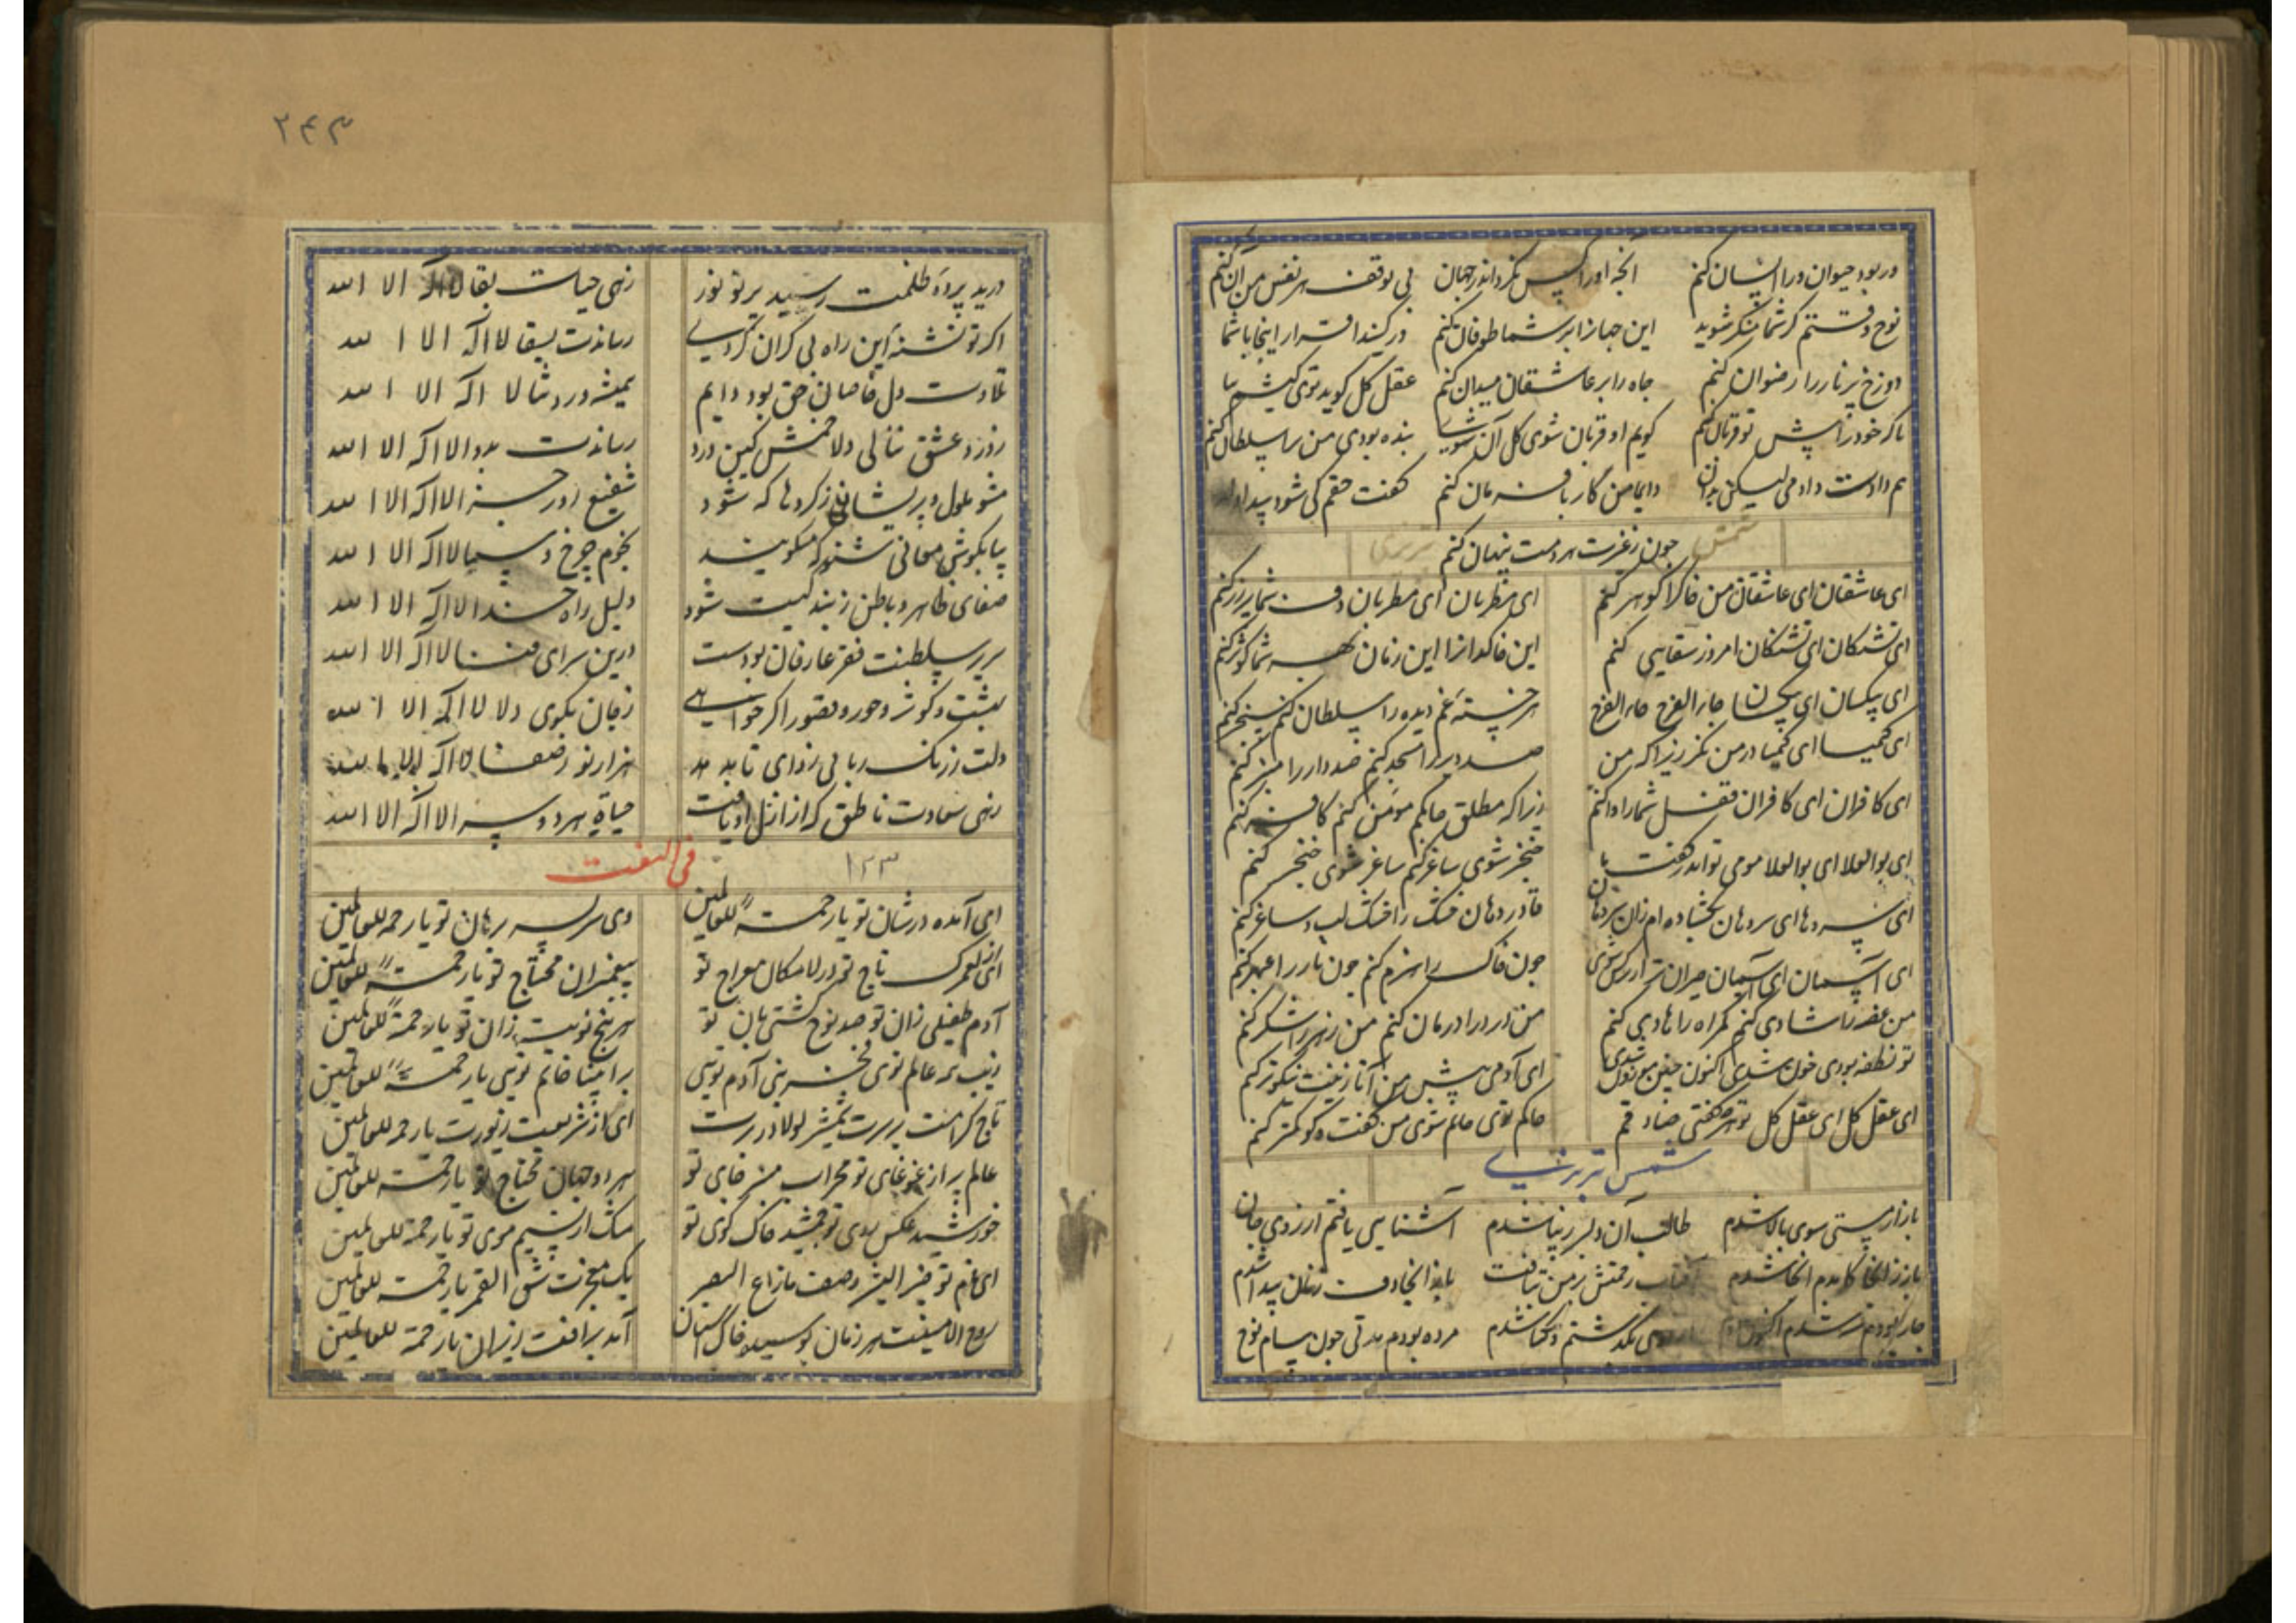 در بود حیوان ورا انسان کنم
آنجه او را کس نکرد اندر جهان
بی توقف هر نفس من آن کنم
نوح وقتم کر شما منکر شوید
این جهانرا بر شما طوفان کنم
ور کنید اقرار اینجا با شما
دوزخ پر نار را رضوان کنم
جاه را بر عاشقان میدان کنم
عقل کل کوید توی
تا که خود را پیش تو قربان کنم
کویم او قربان شوی کل آن شوی
بنده بودی من ترا سلطان کنم
هم دادت دادمی لیکن بدان
دایما من کار با فرمان کنم
کفت حقم کی شود پیدا
جون ز غیرت هر دمت پنهان کنم
ای عاشقان ای عاشقان من خاکرا کوهر کنم
ای مطربان ای مطربان دف شما پر زر کنم
ای تشنکان ای تشنکان امروز سقایی کنم
این خاکدانرا این زمان بهر شما کوثر کنم
ای بیکسان ای بیکسان جاء الفرج جاء الفرج
هر خسته غم دیده را سلطان کنم سنجر کنم
ای کیمیا ای کیمیا در من نکر زیرا که من
صد دیر را مسجد کنم صد دار را منبر کنم
ای کافران ای کافران قفل شما را وا کنم
زیرا که مطلق حاکمم مومن کنم کافر کنم
ای بوالعلا ای بوالعلا مومی تو اندر کفت ما
خنجر شوی ساغر کنم ساغر شوی خنجر کنم
ای سردهان ای سردهان بکشاده ام زان سر دهان
تا در دهان خشک را خشک لب و ساغر کنم
ای آسمان ای آسمان حیران تر از نرکس شوی
جون خاک را عنبر کنم جون خار را عبهر کنم
من غصه را شادی کنم کمراه را هادی کنم
من درد را درمان کنم من زهر را شکر کنم
تو نطفه بودی خون شدی اکنون جنین موزون شدی
ای آدمی پیش من آ تا زینت نیکوتر کنم
ای عقل کل ای عقل کل تو هر جه کفتی صادقم
حاکم توی حاتم توی من کفت و کو کمتر کنم
شمس تبریزی
باز از پستی سوی بالا شدم
طالب آن دلبر زیبا شدم
آشنایی یافتم از زوی جان
باز زانجا کامدم آنجا شدم
آفتاب رحمتش بر من بتافت
مرده بودم مدتی جون سام نوح
۲۴۳
درید پرده ظلمت رسید پرتو نور
زهی حیات بقا لا اله الا الله
اکر تو تشنه این راه بی کران کردی
رساندت بسقا لا اله الا الله
تلاوت دل خاصان حق بود دایم
همیشه ورد شما لا اله الا الله
ز درد عشق ننالی دلا خمش کین درد
رساندت بدوا لا اله الا الله
مشو ملول و پریشان ز کردها که شود
شفیع روز جزا لا اله الا الله
بیا بکوش معانی شنو که میکویند
نجوم چرخ و سما لا اله الا الله
صفای ظاهر و باطن ز بندکیت شود
دلیل راه خدا لا اله الا الله
سریر سلطنت فقر عارفان بودست
درین سرای فنا لا اله الا الله
بهشت و کوثر و حور و قصور اکر خواهی
زجان بکوی دلا لا اله الا الله
دلت ز زنک ربایی زدای تا بدهد
هزار نور و صفا لا اله الا الله
زهی سعادت ناطق که از ازل او یافت
حیاة هر دو سرا لا اله الا الله
۱۲۳
فی النعت
ای آمده در شان تو یا رحمة للعالمین
وی سر بسر برهان تو یا رحمة للعالمین
ای از لعمرک تاج تو در لامکان معراج تو
پیغمبران محتاج تو یا رحمة للعالمین
آدم طفیلی زان تو صد نوح کشتی بان تو
هر پنج نوبت زان تو یا رحمة للعالمین
زیب همه عالم توی فخر بنی آدم توی
بر انبیا خاتم توی یا رحمة للعالمین
تاج کرامت بر سرت تبشیر لولا در برت
ای از شریعت زیورت یا رحمة للعالمین
عالم پر از غوغای تو محراب منبر جای تو
هر دو جهان محتاج تو یا رحمة للعالمین
خورشید عکس روی تو جمشید خاک کوی تو
مشک از نسیم موی تو یا رحمة للعالمین
ای نام تو خیر البشر وصفت ما زاغ البصر
یک معجزت شق القمر یا رحمة للعالمین
روح الامینت هر زمان بوسیده خاک آستان
آمد براقت زیر ران یا رحمة للعالمین